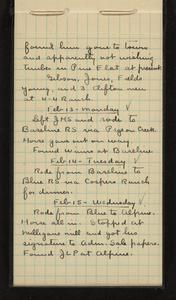 found him gone to town
and apparently not working
timber on Pine Flat at present.
Gibson, Jones, Fields
Young, and 3 Clifton men
at U-U Ranch.
Feb-13-Monday ✓
Left JHS and rode to
Baseline RS via Pigeon Creek.
Horse gave out on way.
Found Winns at Baseline.
Feb-14-Tuesday ✓
Rode from Baseline to
Blue RS via Coopers Ranch
for dinner.
Feb-15-Wednesday ✓
Rode from Blue to Alpine.
Horse all in. Stopped at
Mulligans mill and got his
signature to Adm. Sale papers.
Found at Alpine.